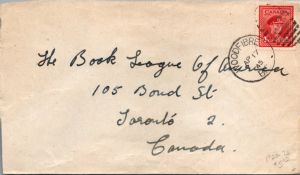 CANADA
WOODFIBRE
17
45
The Book League of America
105 Bond St
Toronto 2.
Canada.